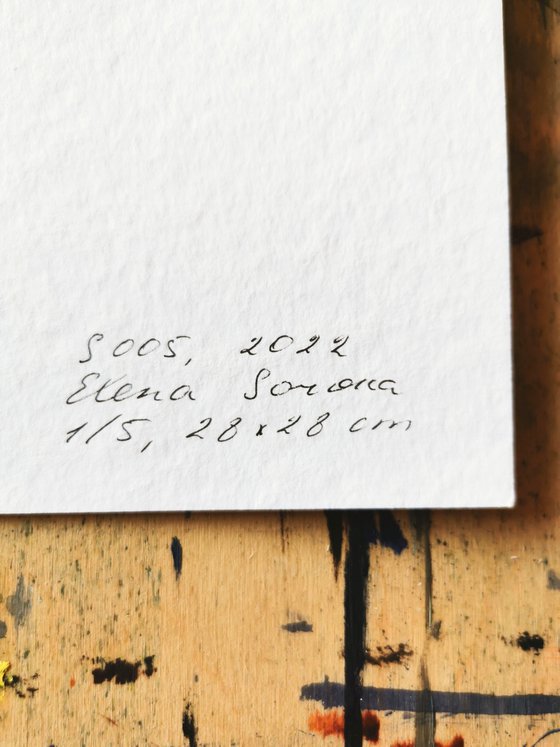 S005, 2022
Elena Soroka
1/5, 28x28 cm